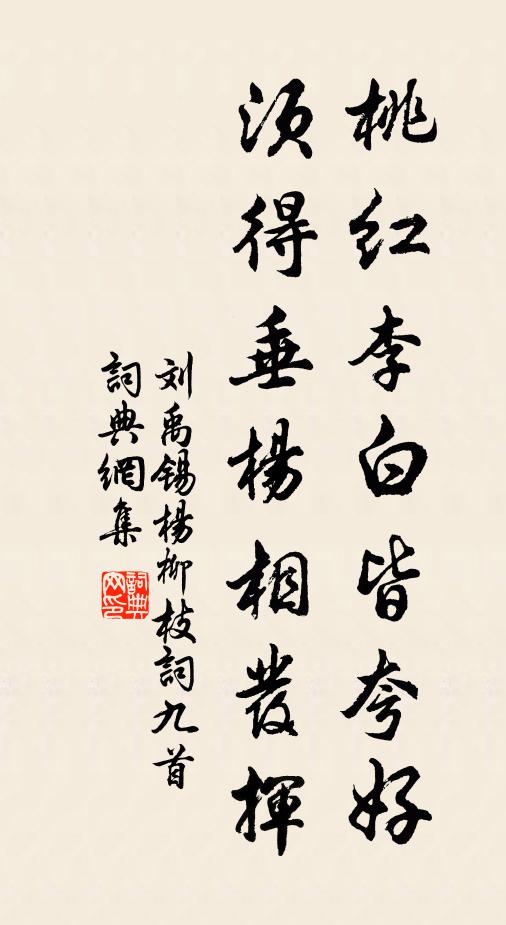 桃红李白皆夸好
须得垂楊相發揮
刘禹锡楊柳枝詞九首
詞典網集
詞典网印